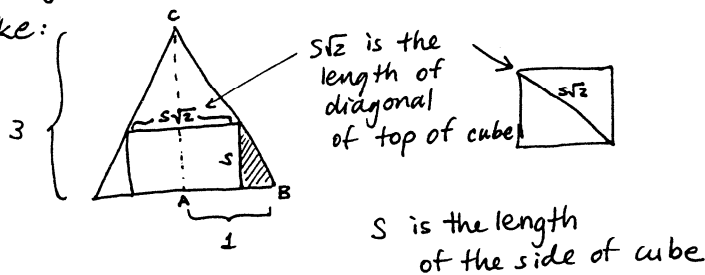 ke:
C
3
s√2
S
A
B
1
s√2 is the
length of
diagonal
of top of cube
s√2
S is the length
of the side of cube